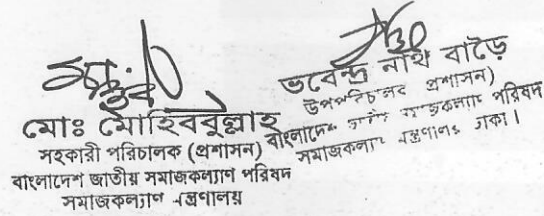 মোঃ মোহিববুল্লাহ
সহকারী পরিচালক (প্রশাসন)
বাংলাদেশ জাতীয় সমাজকল্যাণ পরিষদ
সমাজকল্যাণ মন্ত্রণালয়
ভবেন্দ্র নাথ বাড়ৈ
উপপরিচালক প্রশাসন)
বাংলাদেশ জাতীয় সমাজকল্যাণ পরিষদ
সমাজকল্যাণ মন্ত্রণালয় ঢাকা।